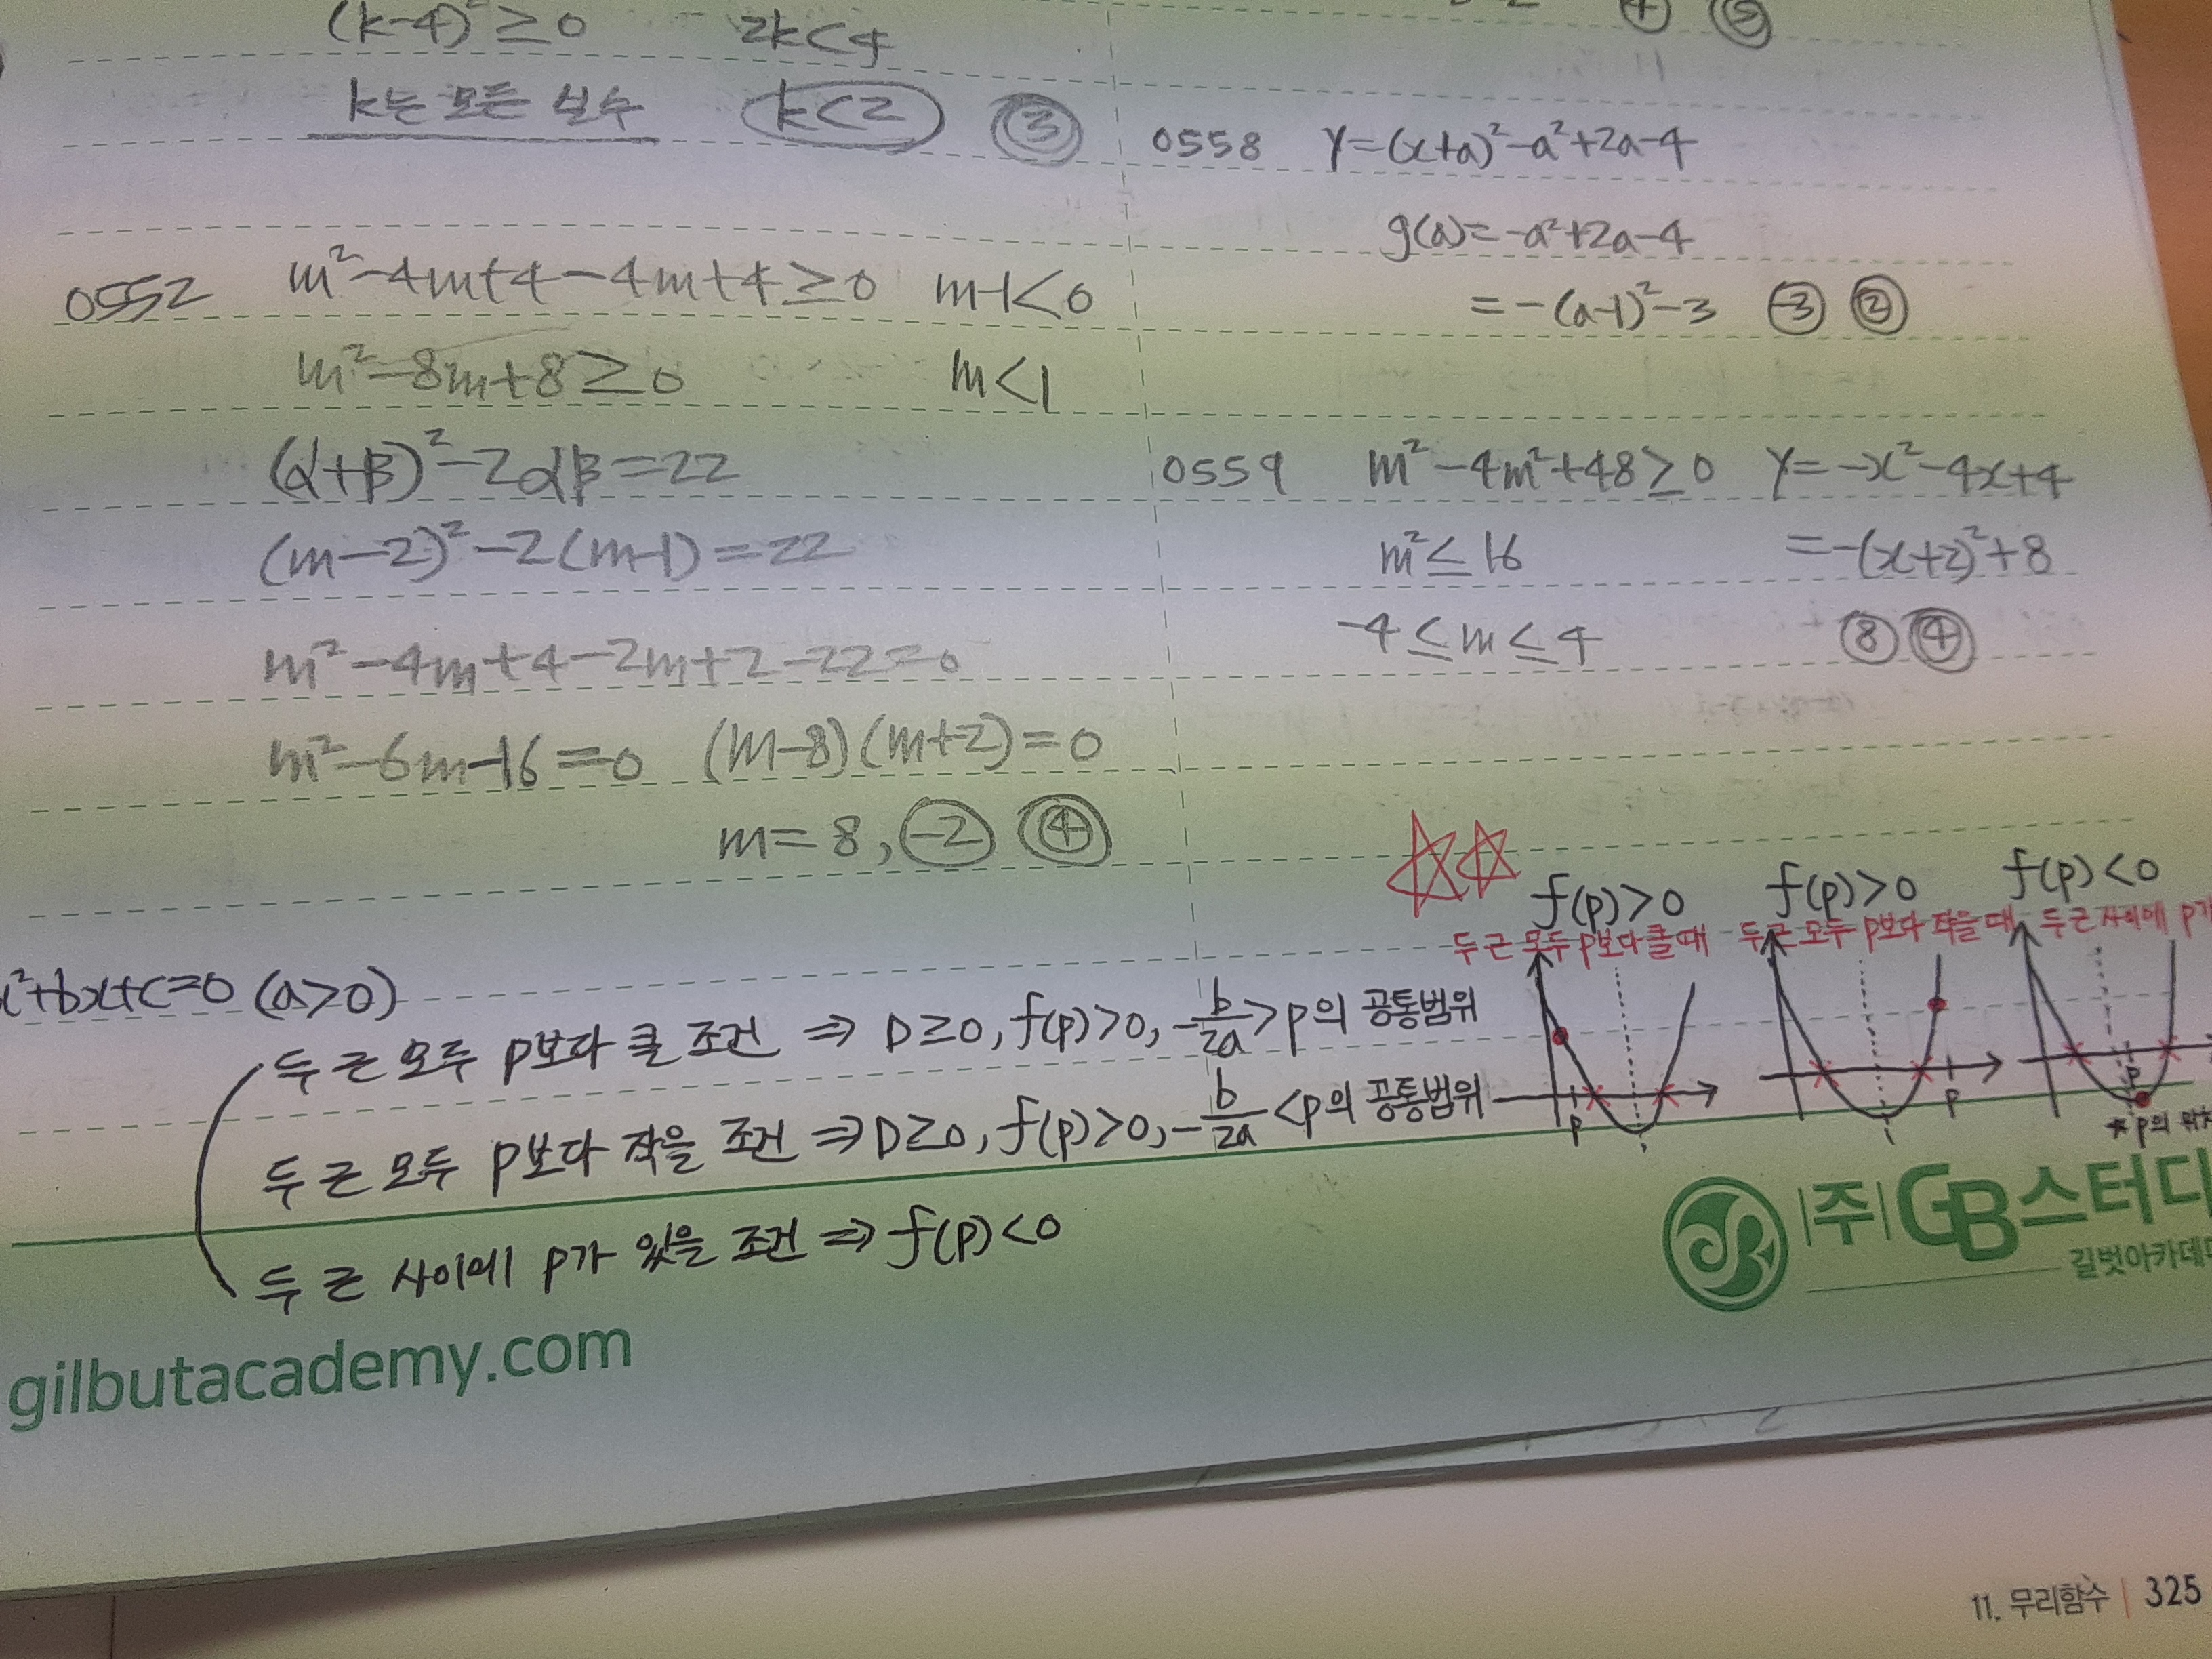 (k-4)² ≥ 0 2k<4
k는 모든 실수 k<2 ③
0552 m²-4m+4-4m+4≥0 m-1<0
m²-8m+8≥0 m<1
(α+β)²-2αβ=22
(m-2)²-2(m-1)=22
m²-4m+4-2m+2-22=0
m²-6m-16=0 (m-8)(m+2)=0
m=8, -2 ④
④ ⑤
0558 y=(x+a)²-a²+2a-4
g(a)=-a²+2a-4
=-(a-1)²-3 -3 ②
0559 m²-4m²+48≥0 y=-x²-4x+4
m²≤16 =-(x+2)²+8
-4≤m≤4 8 ④
x²+bx+c=0 (a>0)
두 근 모두 p보다 클 조건 ⇒ D≥0, f(p)>0, -b/2a>p의 공통범위
두 근 모두 p보다 작을 조건 ⇒ D≥0, f(p)>0, -b/2a<p의 공통범위
두 근 사이에 p가 있을 조건 ⇒ f(p)<0
f(p)>0 f(p)>0 f(p)<0
두 근 모두 p보다 클 때 두 근 모두 p보다 작을 때 두 근 사이에 p가
p p p
* p의
|주| GB스터디
길벗아카데미
gilbutacademy.com
11. 무리함수 | 325